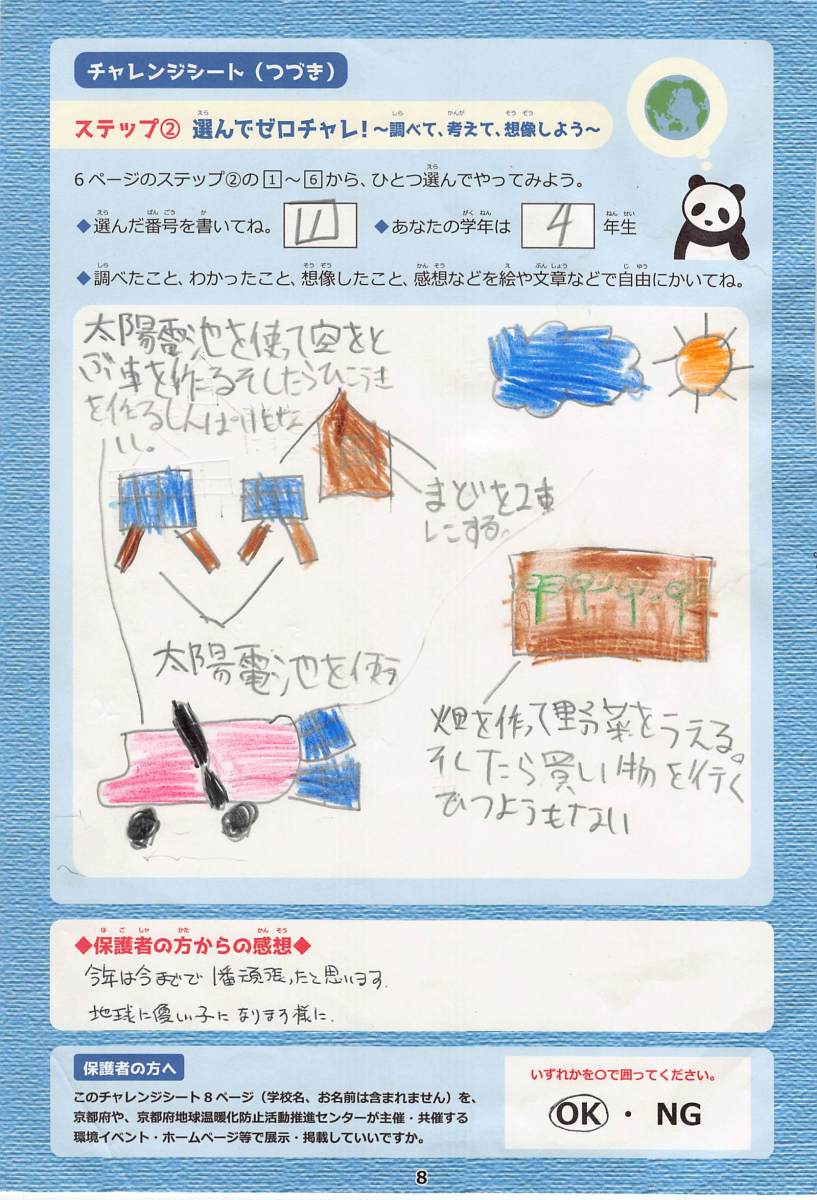 チャレンジシート（つづき）
ステップ② 選んでゼロチャレ！～調べて、考えて、想像しよう～
6ページのステップ②の1～6から、ひとつ選んでやってみよう。
◆選んだ番号を書いてね。 ◆あなたの学年は 4 年生
◆調べたこと、わかったこと、想像したこと、感想などを絵や文章などで自由にかいてね。
太陽電池を使って空をと
ぶ車を作るそしたらひこうき
を作るしんぱいもな
い。
まどを2重
にする。
太陽電池を使う
畑を作って野菜をうえる。
そしたら買い物を行く
ひつようもない
◆保護者の方からの感想◆
今年は今までで1番頑張ったと思います.
地球に優しい子になります様に.
保護者の方へ
このチャレンジシート8ページ（学校名、お名前は含まれません）を、
京都府や、京都府地球温暖化防止活動推進センターが主催・共催する
環境イベント・ホームページ等で展示・掲載していいですか。
いずれかを○で囲ってください。
OK ・ NG
8